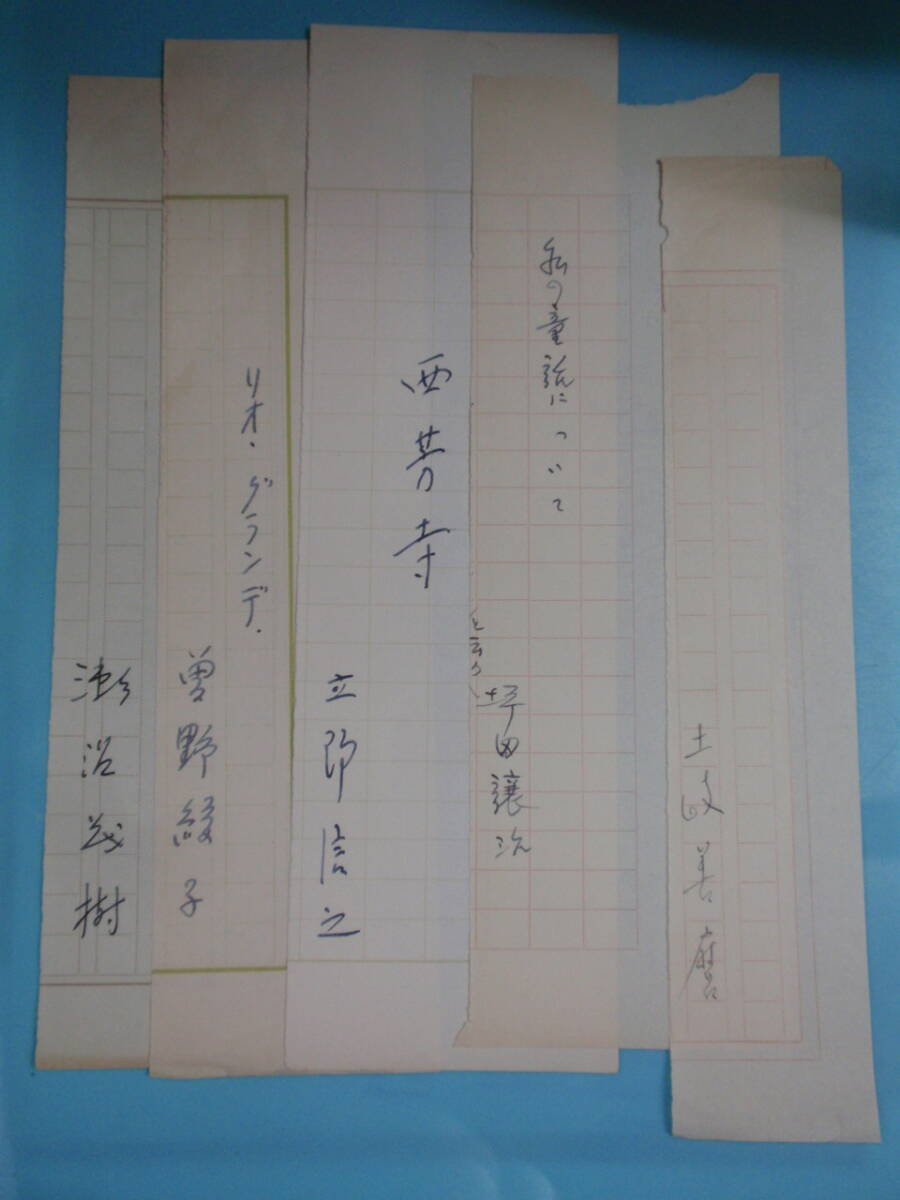 土岐善麿
私の童話について
坪田譲治
西芳寺
立野信之
リオ・グランデ.
曽野綾子
瀬沼茂樹